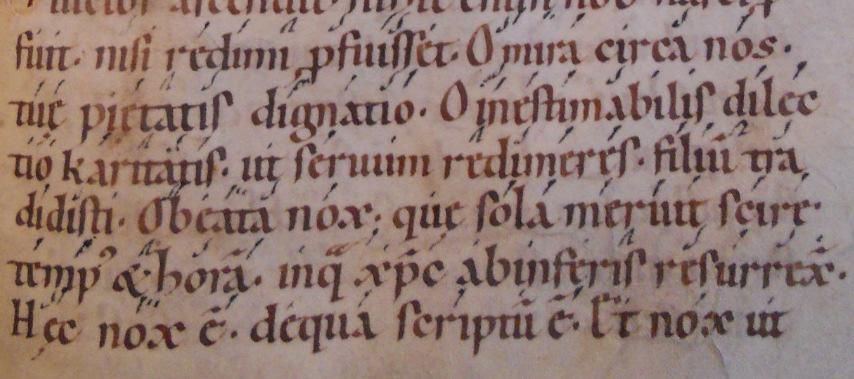 fuit. nisi redimi ꝓfuisset. O mira circa nos.
tue pietatis dignatio. O inestimabilis dilec
tio karitatis. ut seruum redimeres. filiū tra
didisti. O beata nox. que sola meruit scire.
temp᾽ & horā. inq̄ xp̄c ab inferis resurrex̄.
Hec nox ē. de qua scriptū ē. Et nox ut